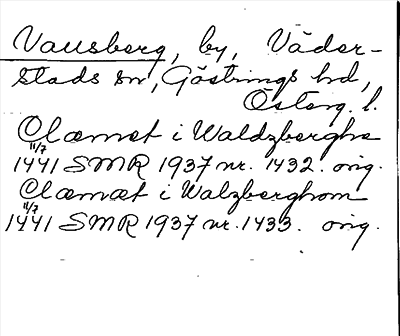 Vausberg, by, Väder-
stads sn, Göstrings hd,
Österg. l.
Clæmæt i Waldzberghe
11/7
1441 SMR 1937 nr. 1432. orig.
Clæmæt i Walzberghom
11/7
1441 SMR 1937 nr. 1433. orig.